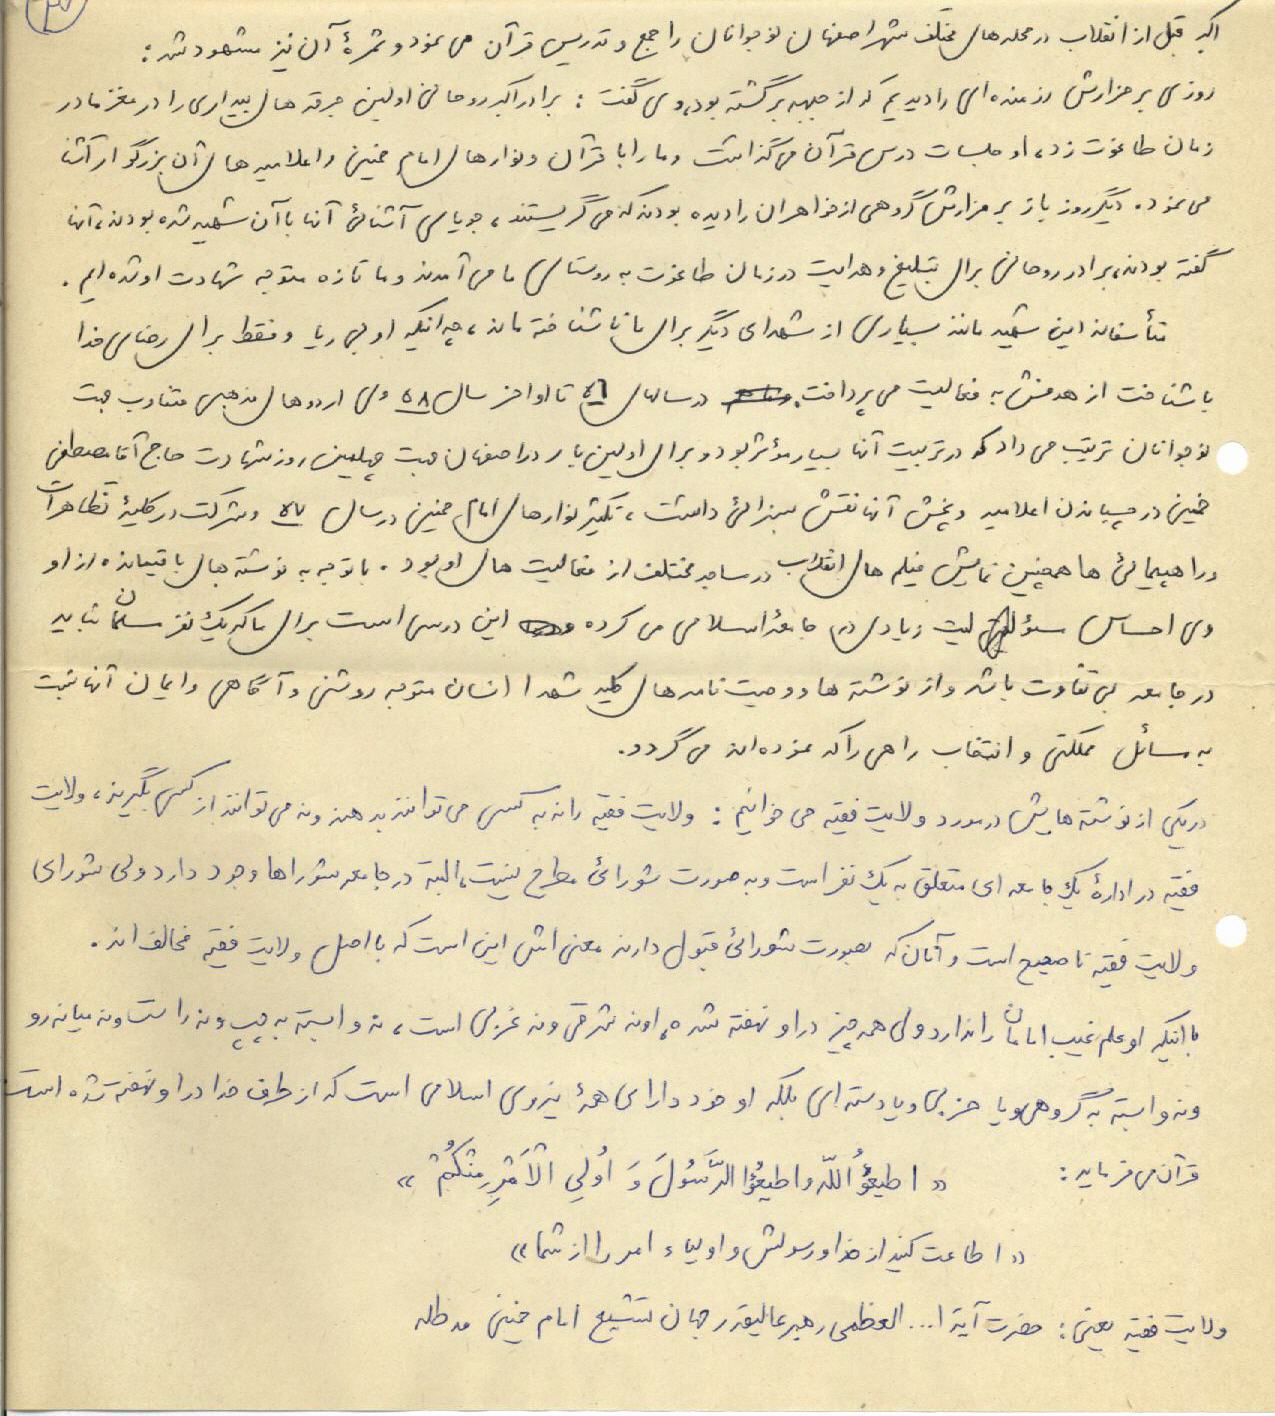 اکبر قبل از انقلاب در محله های مختلف شهر اصفهان نوجوانان را جمع و تدریس قرآن می نمود و ثمرهٔ آن نیز مشهود شد :
روزی بر مزارش رزمنده ای را دیدیم که از جبهه برگشته بود، وی گفت : برادر اکبر روحانی اولین جرقه های بیداری را در مغز ما در
زمان طاغوت زد، او جلسات درس قرآن می گذاشت و ما را با قرآن و نوارهای امام خمینی و اعلامیه های آن بزرگوار آشنا
می نمود. دیگر روز باز بر مزارش گروهی از خواهران را دیده بودند که می گریستند، جویای آشنائی آنها با آن شهید شده بودند، آنها
گفته بودند، برادر روحانی برای تبلیغ و هدایت در زمان طاغوت به روستای ما می آمدند و ما تازه متوجه شهادت او شده ایم .
متأسفانه این شهید مانند بسیاری از شهدای دیگر برای ما ناشناخته ماند، چه اینکه او بی ریا و فقط برای رضای خدا
با شناخت از هدفش به فعالیت می پرداخت. در سالهای ۵۶ تا اواخر سال ۵۸ وی اردوهای مذهبی متناوب جهت
نوجوانان ترتیب می داد که در تربیت آنها بسیار مؤثر بود و برای اولین بار در اصفهان جهت چهلمین روز شهادت حاج آقا مصطفی
خمینی در چسباندن اعلامیه و پخش آنها نقش بسزائی داشت، تکثیر نوارهای امام خمینی در سال ۵۷ و شرکت در کلیهٔ تظاهرات
و راهپیمائی ها همچنین نمایش فیلم های انقلاب در مساجد مختلف از فعالیت های او بود . با توجه به نوشته های باقیمانده از او
وی احساس مسؤلیت زیادی در جامعهٔ اسلامی می کرده این درسی است برای ما که یک نفر مسلمان نباید
در جامعه بی تفاوت باشد و از نوشته ها و وصیت نامه های کلیه شهدا انسان متوجه روشنی و آگاهی و ایمان آنها نسبت
به مسائل مملکتی و انتخاب راهی را که نموده اند می گردد.
در یکی از نوشته هایش در مورد ولایت فقیه می خوانیم : ولایت فقیه را نه به کسی می توانند بدهند و نه می توانند از کسی بگیرند، ولایت
فقیه در ادارهٔ یک جامعه ای متعلق به یک نفر است و به صورت شورائی مطرح نیست، البته در جامعه شوراها وجود دارد ولی شورای
ولایت فقیه ناصحیح است و آنان که بصورت شورائی قبول دارند معنی اش این است که با اصل ولایت فقیه مخالف اند .
با اینکه او علم غیب امامان را ندارد ولی همه چیز در او نهفته شده، او نه شرقی و نه غربی است، نه وابسته به چپ و نه راست و نه میانه رو
و نه وابسته به گروهی و یا حزبی و یا دسته ای بلکه او خود دارای همهٔ نیروی اسلامی است که از طرف خدا در او نهفته شده است
قرآن می فرماید : « اطیعُوُاللّه و اطیعُوُا الرَّسُولَ وَ اُولِی الْاَمْرِ مِنْکُمْ »
« اطاعت کنید از خدا و رسولش و اولیاء امر را از شما »
ولایت فقیه یعنی : حضرت آیة ا... العظمی رهبر عالیقدر جهان تشیع امام خمینی مدظله